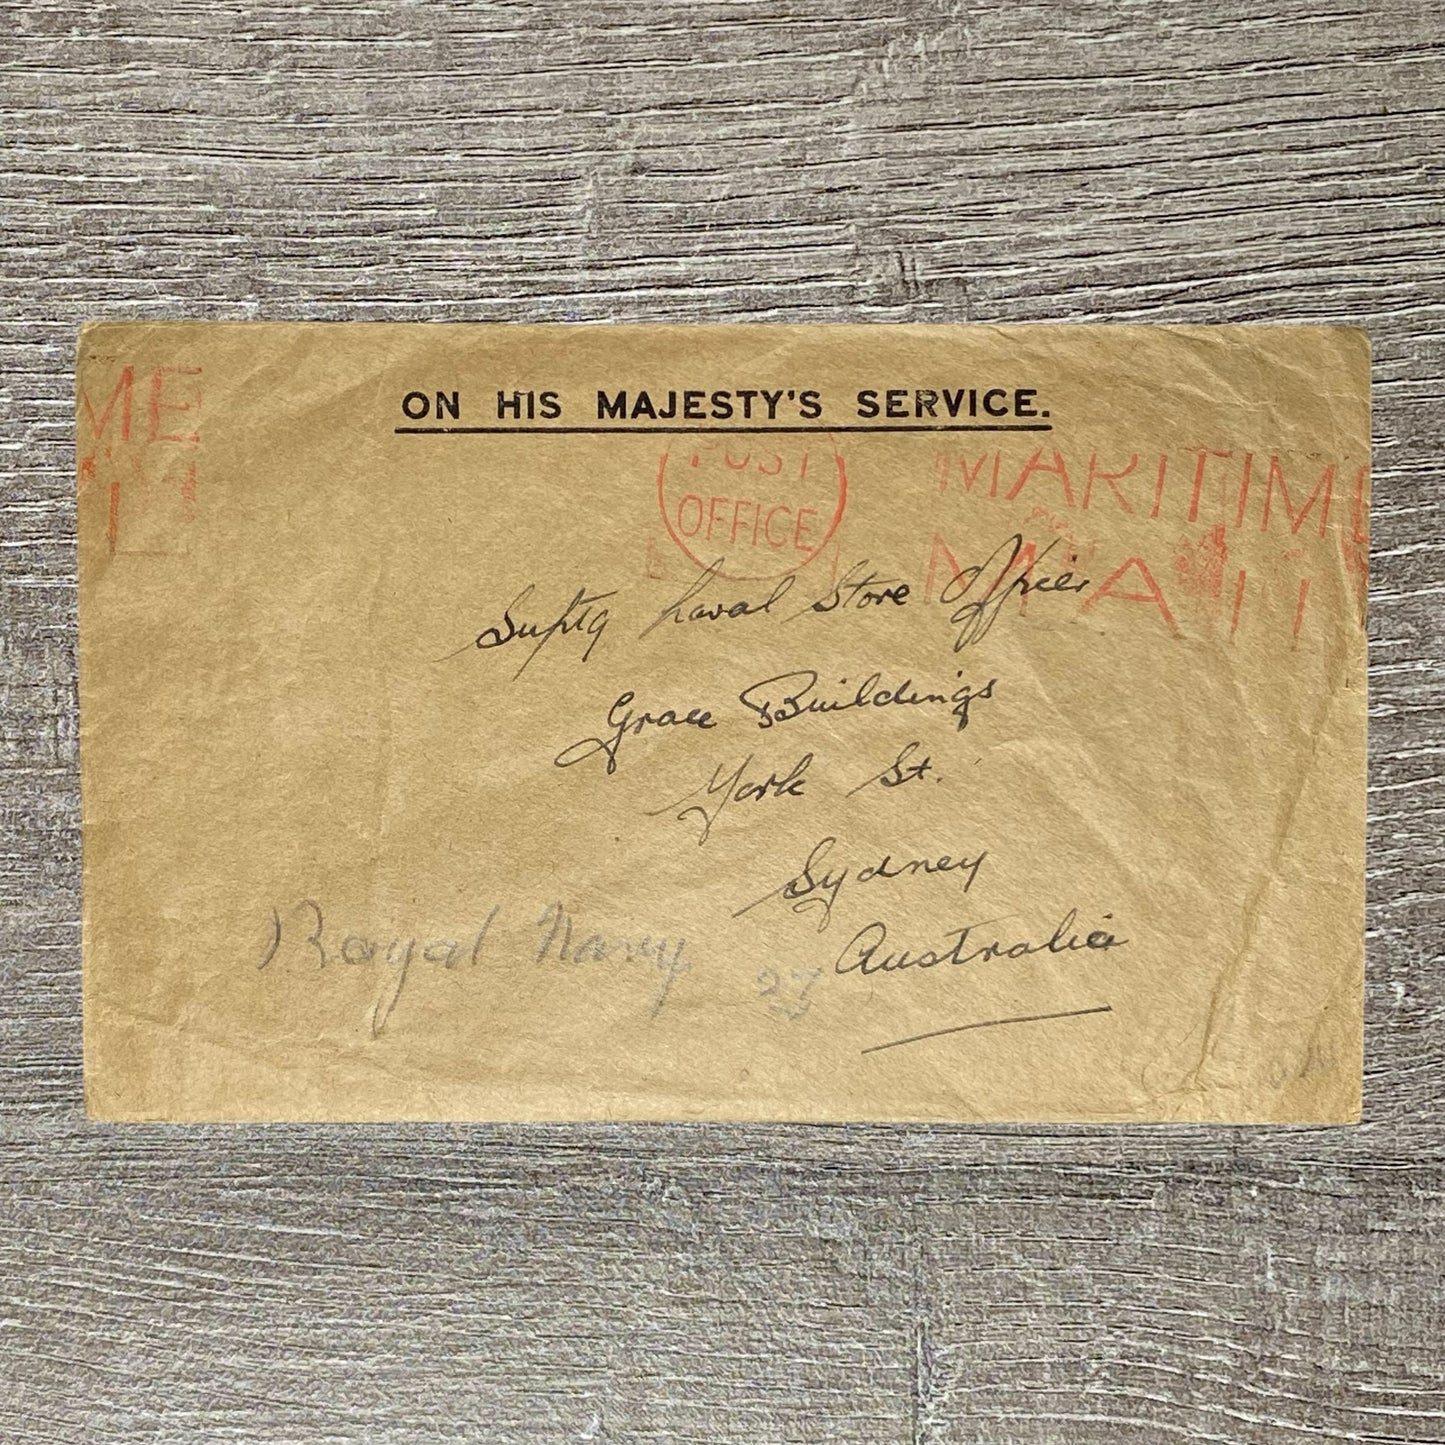 ON HIS MAJESTY'S SERVICE.
ME
POST
OFFICE
MARITIME
MAIL
Suptg Naval Store Officer
Grace Buildings
York St.
Sydney
Australia
Royal Navy